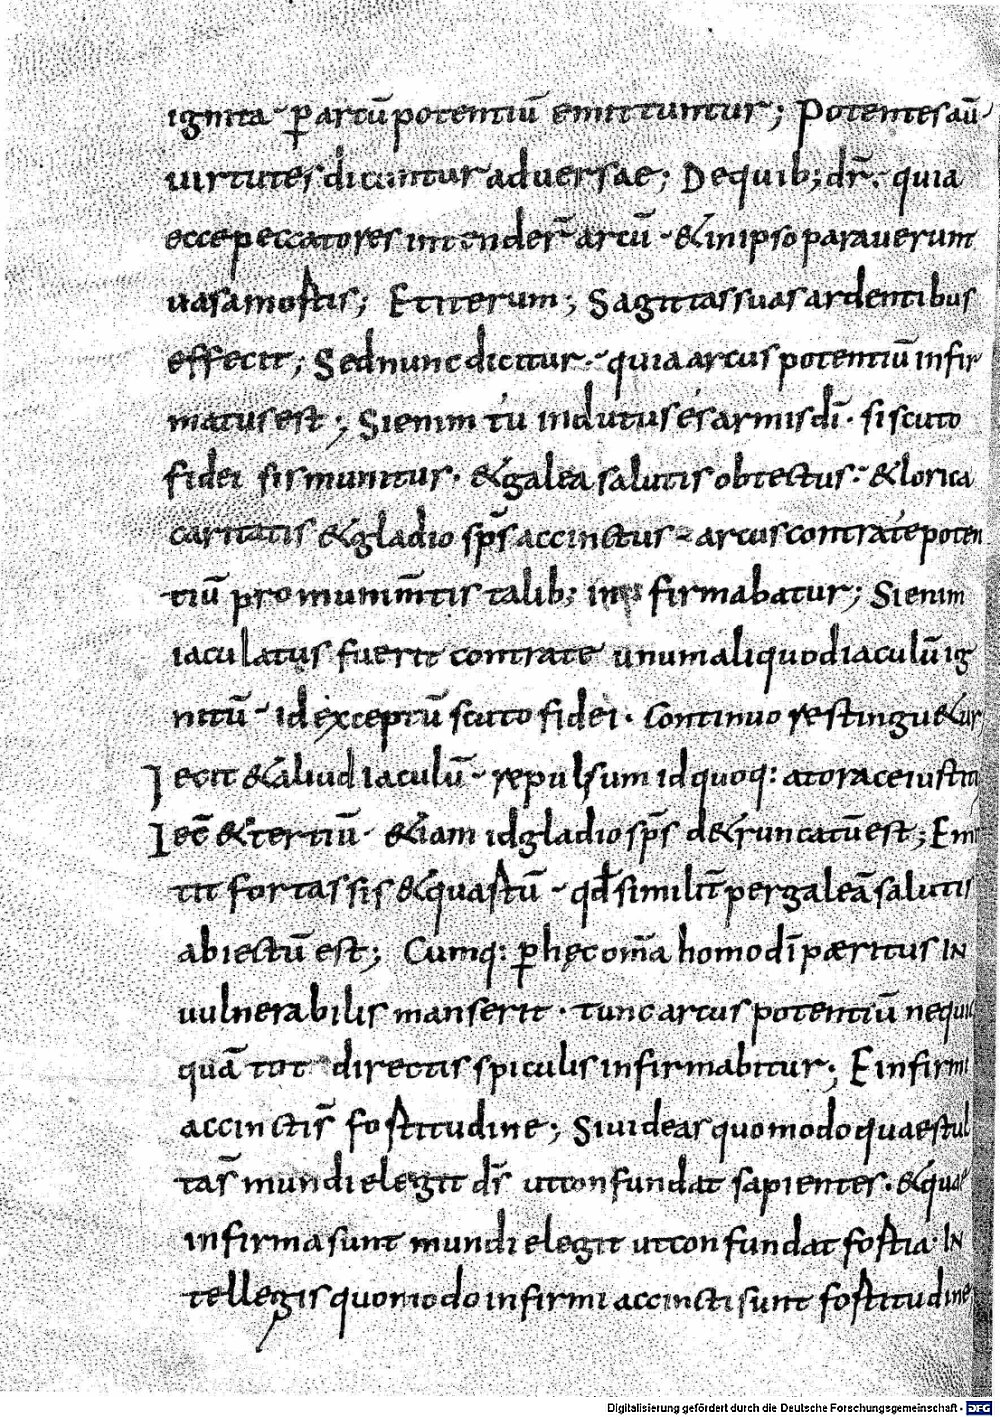 ignita ̵ p̱ arcū potentiū emittuntur; Potentes aū
uirtutes dicuntur aduersae; Dequib; dr̄ quia
ecce peccatores intender̄ arcū · & in ipso parauerunt
uasa mortis; Et iterum; Sagittas suas ardentibus
effecit; Sed nunc dicitur · quia arcus potentiū infir
matus est; Si enim tu indutus es armis dī · si scuto
fidei sis munitus · & galea salutis obtectus · & lorica
caritatis & gladio sp̄s accinctus arcus contra te poten
tiū pro munim̄tis talib; infirmabatur; Si enim
iaculatus fuerit contra te unum aliquod iaculū ig
nitū · id exceptū scuto fidei · Continuo restingu&ur
Iecit & aliud iaculū · repulsum idquoq: a torace iustitię
Iec̄ & tertiū · & iam id gladio sp̄s d&runcatū est; Emit
tit fortassis & quartū · qđ simili t̄ per galeā salutis
abiectū est; Cumq: p̱ hęc om̄a homo dī p&aeligritus IN
uulnerabilis manserit · tunc arcus potentiū nequic
quā tot directis spiculis infirmabitur; E infirmi
accincti s̄ fortitudine; Si uideas quomodo quae stul
ta s̄ mundi elegit ds̄ ut confundat sapientes · & quae
infirma sunt mundi elegit ut confundat fortia · IN
tellegis quomodo infirmi accincti sunt fortitudine
Digitalisierung gefördert durch die Deutsche Forschungsgemeinschaft - DFG